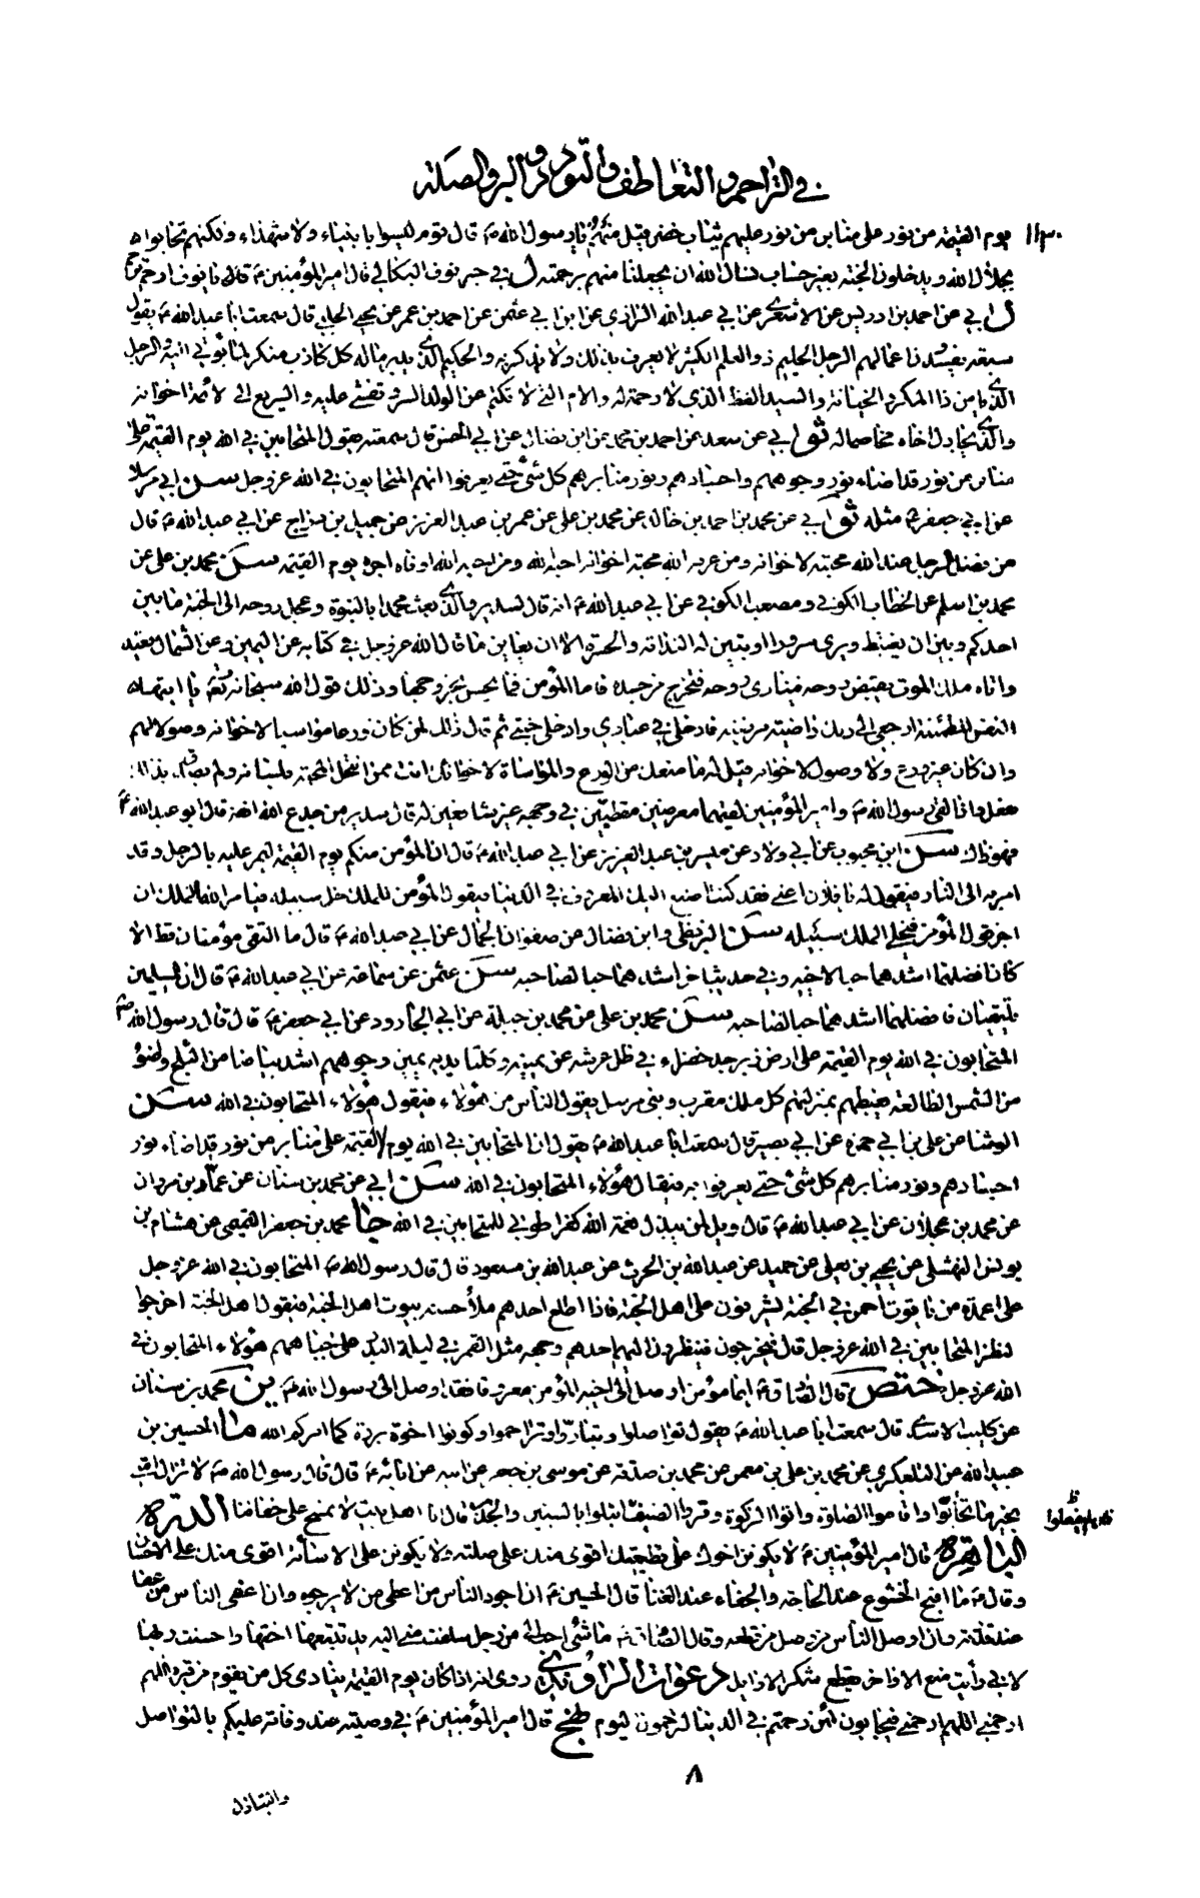 في التراحم والتعاطف والتودد والبر والصلة
يوم القيمة من نور على منابر من نور عليهم ثياب خضر فقيل منهم يا رسول الله ص قال قوم ليسوا بانبياء ولا شهداء ولكنهم تحابوا
بجلال الله ويدخلون الجنة بغير حساب نسال الله ان يجعلنا منهم برحمته ل في خبر نوف البكالي قال امير المؤمنين ع قال يا نوف ارحم
ل ابي عن احمد بن ادريس عن الاشعري عن ابي عبد الله الرازي عن ابن ابي عثمن عن احمد بن عمر عن يحيى الحلبي قال سمعت ابا عبد الله ع يقول
سبعة يفسدون اعمالهم الرجل الحليم ذو العلم الكثير لا يعرف بذلك ولا يذكر به والحكيم الذي يدبر ماله كل كاذب منكر لما يؤتى اليه والرجل
الذي يامن ذا المكر والخيانة والسيد الفظ الذي لا رحمة له والام التي لا تكتم عن الولد السر وتفشي عليه والسريع الى لائمة اخوانه
والذي يجادل اخاه مخاصما له ثو ابي عن سعد عن احمد بن محمد عن ابن فضال عن ابي الحسن قال سمعته يقول المتحابين في الله يوم القيمة على
منابر من نور قد اضاء نور وجوههم واجسادهم ونور منابرهم كل شئ حتى يعرفوا انهم المتحابون في الله عز وجل سن ابي مرسلا
عن ابي جعفر ع مثله ثو ابي عن محمد بن احمد بن خالد عن محمد بن علي عن عمر بن عبد العزيز عن جميل بن دراج عن ابي عبد الله ع قال
من فضل الرجل عند الله محبته لاخوانه ومن عرفه الله محبة اخوانه احبه الله ومن احبه الله اوفاه اجره يوم القيمة سن محمد بن علي عن
محمد بن اسلم عن الخطاب الكوفي ومصعب الكوفي عن ابي عبد الله ع انه قال لسدير والذي بعث محمدا بالنبوة وعجل روحه الى الجنة ما بين
احدكم وبين ان يغتبط ويرى سرورا او تبين له الندامة والحسرة الا ان يعاين ما قال الله عز وجل في كتابه عن اليمين وعن الشمال قعيد
واتاه ملك الموت بقبض روحه فينادي روحه فتخرج من جسده فاما المؤمن فما يحس بخروجها وذلك قول الله سبحانه وتعالى يا ايتها
النفس المطمئنة ارجعي الى ربك راضية مرضية فادخلي في عبادي وادخلي جنتي ثم قال ذلك لمن كان ورعا مواسيا لاخوانه وصولا لهم
وان كان غير ورع ولا وصول لاخوانه قيل له ما منعك من الورع والمؤاساة لاخوانك انت ممن انتحل المحبة بلسانه ولم يصدق ذلك
بفعل واذا لقي رسول الله ص وامير المؤمنين لقيهما معرضين مقطبين في وجهه غير شافعين له قال سدير من جدع الله انفه قال ابو عبد الله ع
فهو ذاك سن ابن محبوب عن ابي ولاد عن ميسر بن عبد العزيز عن ابي عبد الله ع قال ان المؤمن منكم يوم القيمة ليمر عليه بالرجل وقد
امر به الى النار فيقول له يا فلان اغثني فقد كنت اصنع اليك المعروف في الدنيا فيقول المؤمن للملك خل سبيله فيامر الله الملك ان
اجز قول المؤمن فيخلي الملك سبيله سن البزنطي وابن فضال عن صفوان الجمال عن ابي عبد الله ع قال ما التقى مؤمنان قط الا
كان افضلهما اشدهما حبا لاخيه وفي حديث اخر اشدهما حبا لصاحبه سن عثمن عن سماعة عن ابي عبد الله ع قال ان المسلمين
يلتقيان فافضلهما اشدهما حبا لصاحبه سن محمد بن علي عن محمد بن جبلة عن ابي الجارود عن ابي جعفر ع قال قال رسول الله ص
المتحابون في الله يوم القيمة على ارض زبرجد خضراء في ظل عرشه عن يمينه وكلتا يديه يمين وجوههم اشد بياضا من الثلج واضوء
من الشمس الطالعة يغبطهم بمنزلتهم كل ملك مقرب ونبي مرسل يقول الناس من هؤلاء فيقول هؤلاء المتحابون في الله سن
الوشا عن علي بن ابي حمزة عن ابي بصير قال سمعت ابا عبد الله ع يقول ان المتحابين في الله يوم القيمة على منابر من نور قد اضاء نور
اجسادهم ونور منابرهم كل شئ حتى يعرفوا به فيقال هؤلاء المتحابون في الله سن ابي عن محمد بن سنان عن عمار بن مروان
عن محمد بن عجلان عن ابي عبد الله ع قال ويل لمن يبدل نعمة الله كفرا طوبى للمتحابين في الله جا محمد بن جعفر التميمي عن هشام بن
يونس النهشلي عن يحيى بن يعلى عن حميد عن عبد الله بن الحرث عن عبد الله بن مسعود قال قال رسول الله ص المتحابون في الله عز وجل
على اعمدة من ياقوت احمر في الجنة يشرفون على اهل الجنة فاذا اطلع احدهم ملأ حسنه بيوت اهل الجنة فيقول اهل الجنة اخرجوا
ننظر المتحابين في الله عز وجل قال فيخرجون فينظرون اليهم احدهم وجهه مثل القمر في ليلة البدر على جباههم هؤلاء المتحابون في
الله عز وجل ختص قال الصادق ع ايما مؤمن اوصل الى اخيه المؤمن معروفا فقد اوصل الى رسول الله ص ين محمد بن سنان
عن كليب الاسدي قال سمعت ابا عبد الله ع يقول تواصلوا وتباروا وتراحموا وكونوا اخوة بررة كما امركم الله ما الحسين بن
عبيد الله عن التلعكبري عن محمد بن علي بن معمر عن محمد بن صدقة عن موسى بن جعفر عن ابيه عن ابائه ع قال قال رسول الله ص لا تزال امتي
بخير ما تحابوا واقاموا الصلوة واتوا الزكوة وقروا الضيف ابتلوا بالسنين والجدب قال انا اهل بيت لا نمسح على خفافنا الدرة
الباهرة قال امير المؤمنين ع لا يكونن اخوك على قطيعتك اقوى منك على صلته ولا يكونن على الاساءة اقوى منك على الاحسان
وقال ع ما اقبح الخشوع عند الحاجة والجفاء عند الغنا قال الحسين ع ان اجود الناس من اعطى من لا يرجوه وان اعفى الناس من عفا
عند قدرته وان اوصل الناس من وصل من قطعه وقال الصادق ع ما شئ احب الي من رجل سلفت مني اليه يد تتبعها اختها واحسنت ربها
لاني رايت منع الاواخر يقطع شكر الاوايل دعوات الراوندي روي انه اذا كان يوم القيمة ينادي كل من يقوم من قبره اللهم
ارحمني اللهم ارحمني فيجابون لئن رحمتم في الدنيا لترحمون اليوم نهج قال امير المؤمنين ع في وصيته عند وفاته عليكم بالتواصل
٨
والتباذل